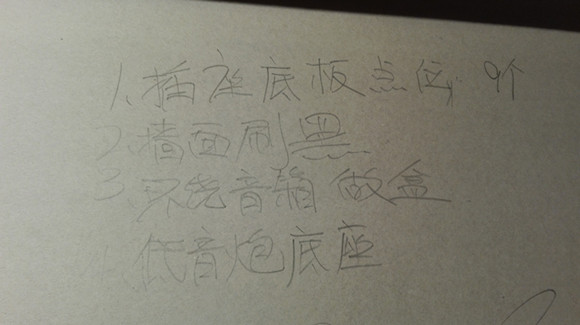 1、插座底板点位 9个
2、墙面刷黑
3、环绕音箱做盒
4、低音炮底座